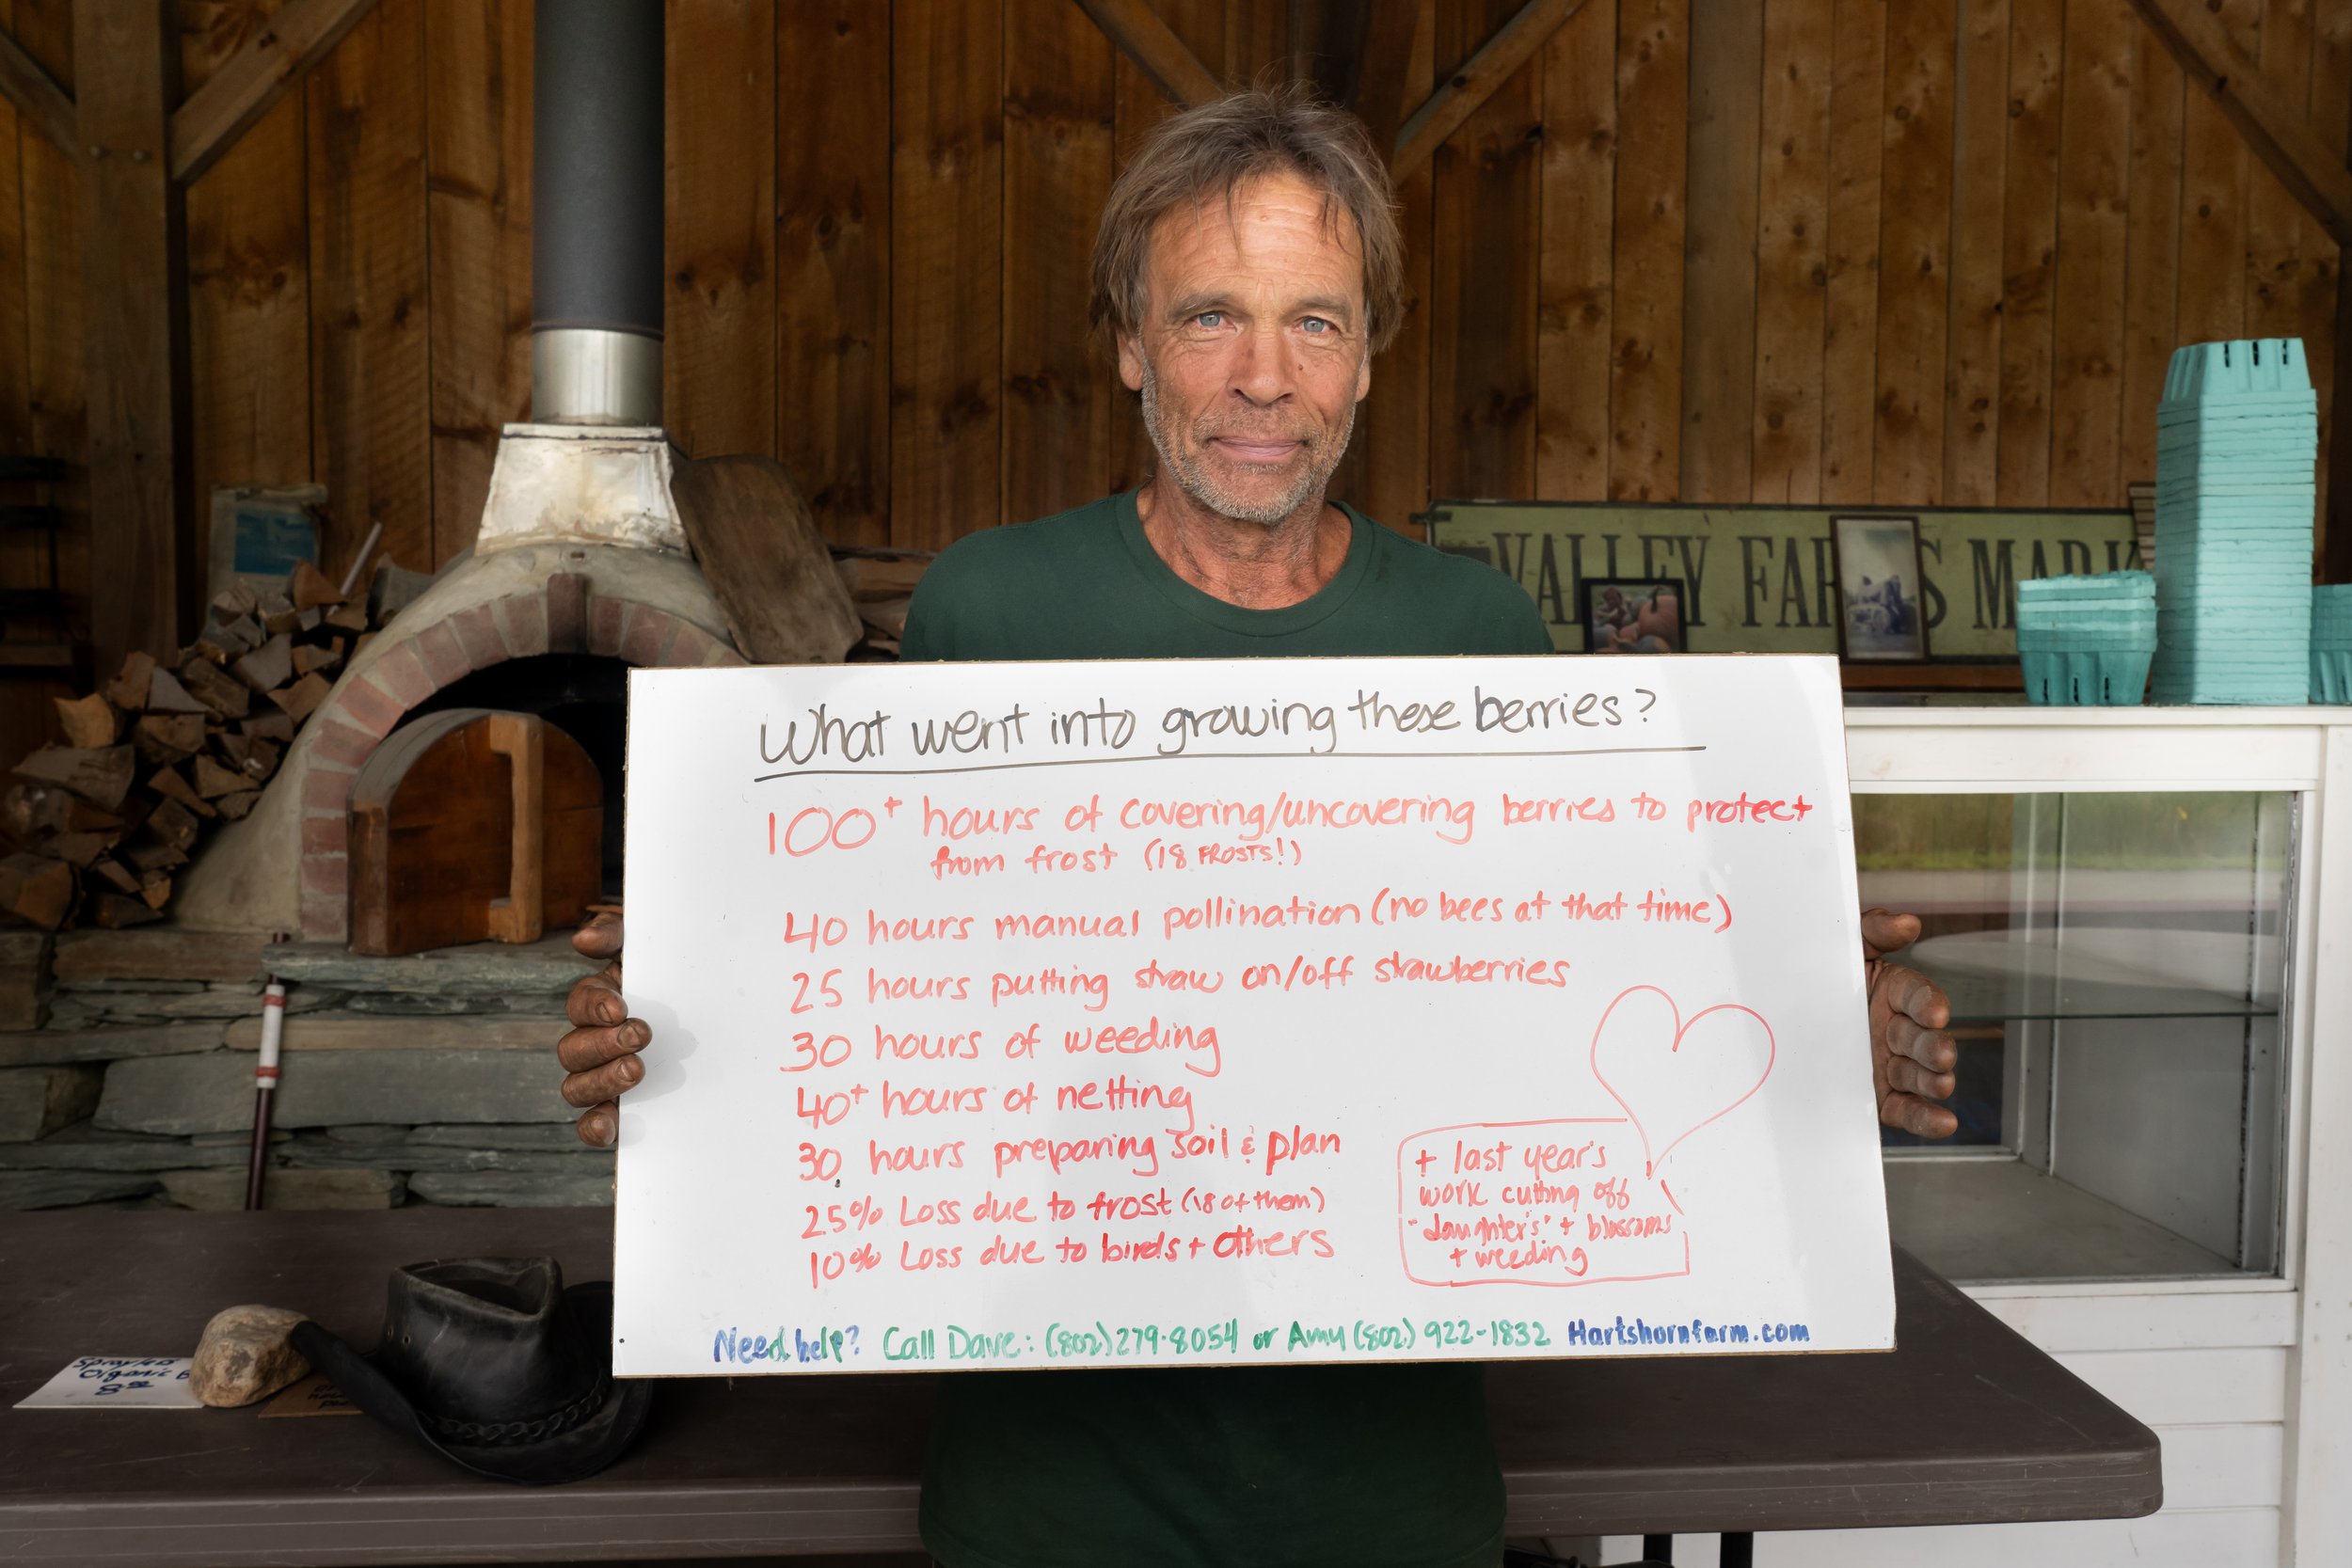 VALLEY FAR S MARK
What went into growing these berries?
100+ hours of covering/uncovering berries to protect
from frost (18 FROSTS!)
40 hours manual pollination (no bees at that time)
25 hours putting straw on/off strawberries
30 hours of weeding
40+ hours of netting
30 hours preparing soil & plan
25% Loss due to frost (18 of them)
10% Loss due to birds + others
+ last year's
work cutting off
"daughter's" + blossoms
+ weeding
Need help? Call Dave: (802) 279-8054 or Amy (802) 922-1832 Hartshornfarm.com
Organic
8.00